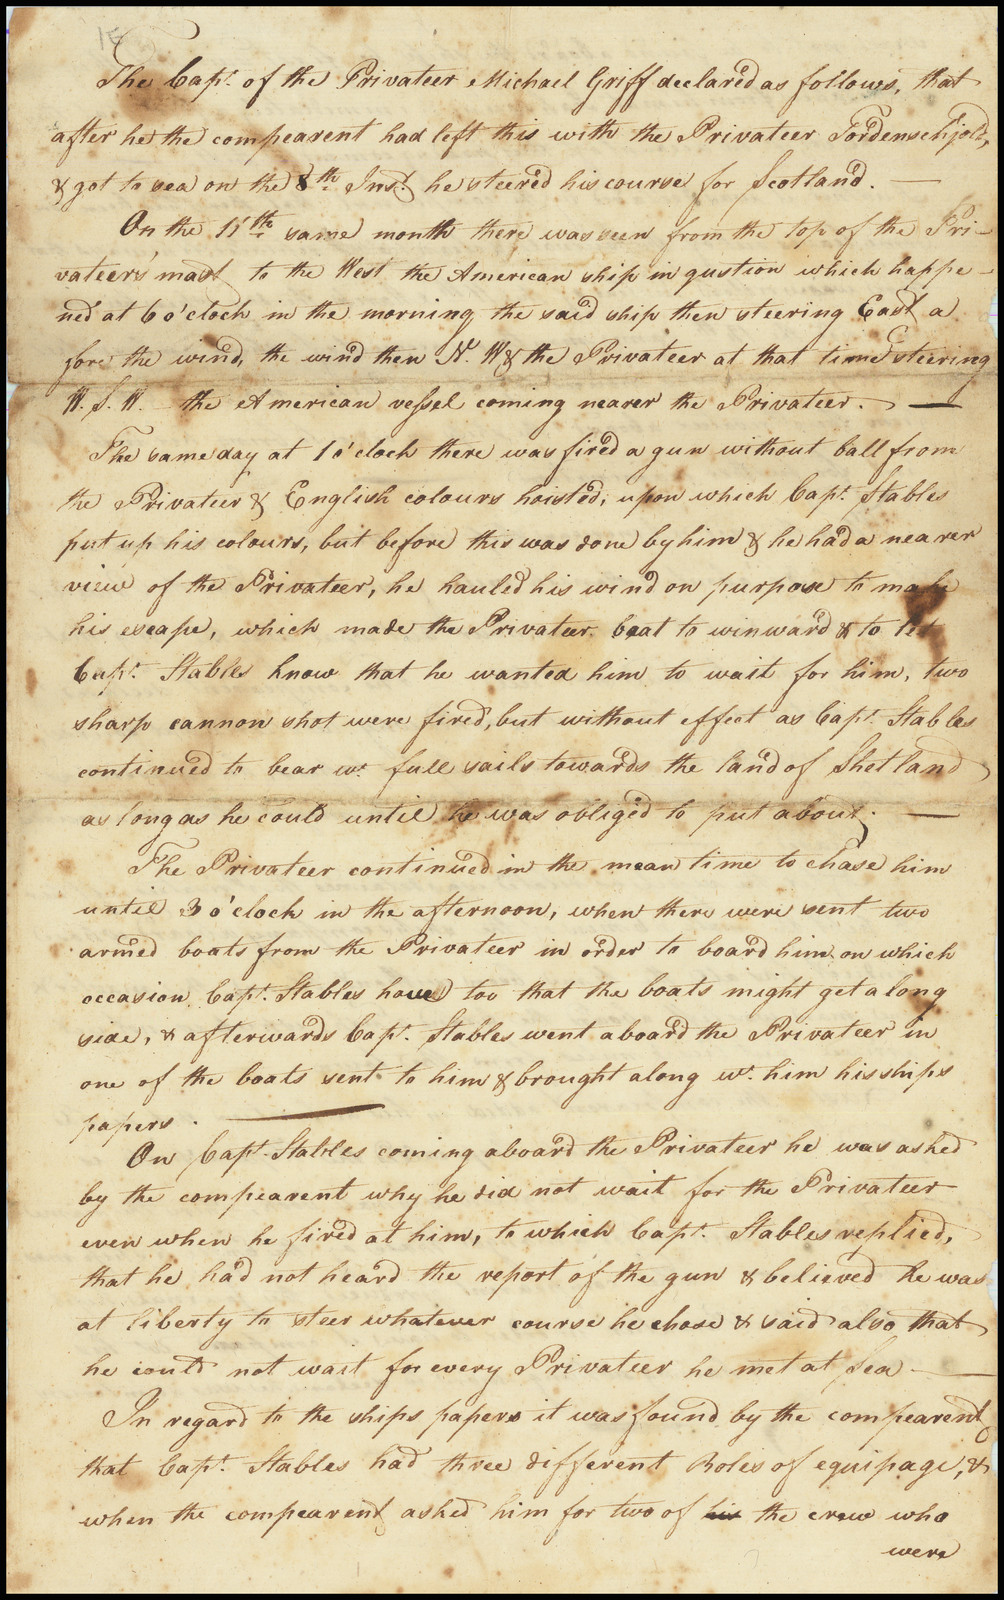 The Capt. of the Privateer Michael Griff declared as follows, that
after he the compearent had left this with the Privateer Tordenschjold,
& got to sea on the 8th Inst. he steered his course for Scotland. —
On the 11th same month there was seen from the top of the Pri-
vateer's mast to the West the American ship in qustion which happe-
ned at 6 o'clock in the morning the said ship then steering East a
fore the wind, the wind then N. W & the Privateer at that time steering
W. S. W. the American vessel coming nearer the Privateer. —
The same day at 1 o'clock there was fired a gun without ball from
the Privateer & English colours hoisted, upon which Capt. Stables
put up his colours, but before this was done by him & he had a nearer
view of the Privateer, he hauled his wind on purpose to make
his escape, which made the Privateer beat to winward & to let
Capt. Stables know that he wanted him to wait for him, two
sharp cannon shot were fired, but without effect as Capt. Stables
continued to bear wt. full sails towards the land of Shetland
as long as he could until he was obliged to put about. —
The Privateer continued in the mean time to chase him
until 3 o'clock in the afternoon, when there were sent two
armed boats from the Privateer in order to board him on which
occasion Capt. Stables hoved too that the boats might get along
side, & afterwards Capt. Stables went aboard the Privateer in
one of the boats sent to him & brought along wt. him his ships
papers. —
On Capt. Stables coming aboard the Privateer he was asked
by the compearent why he did not wait for the Privateer
even when he fired at him, to which Capt. Stables replied,
that he had not heard the report of the gun & believed he was
at liberty to steer whatever course he chose & said also that
he could not wait for every Privateer he met at Sea —
In regard to the ships papers it was found by the compearent
that Capt. Stables had three different Roles of equipage, &
when the compearent asked him for two of his the crew who
were